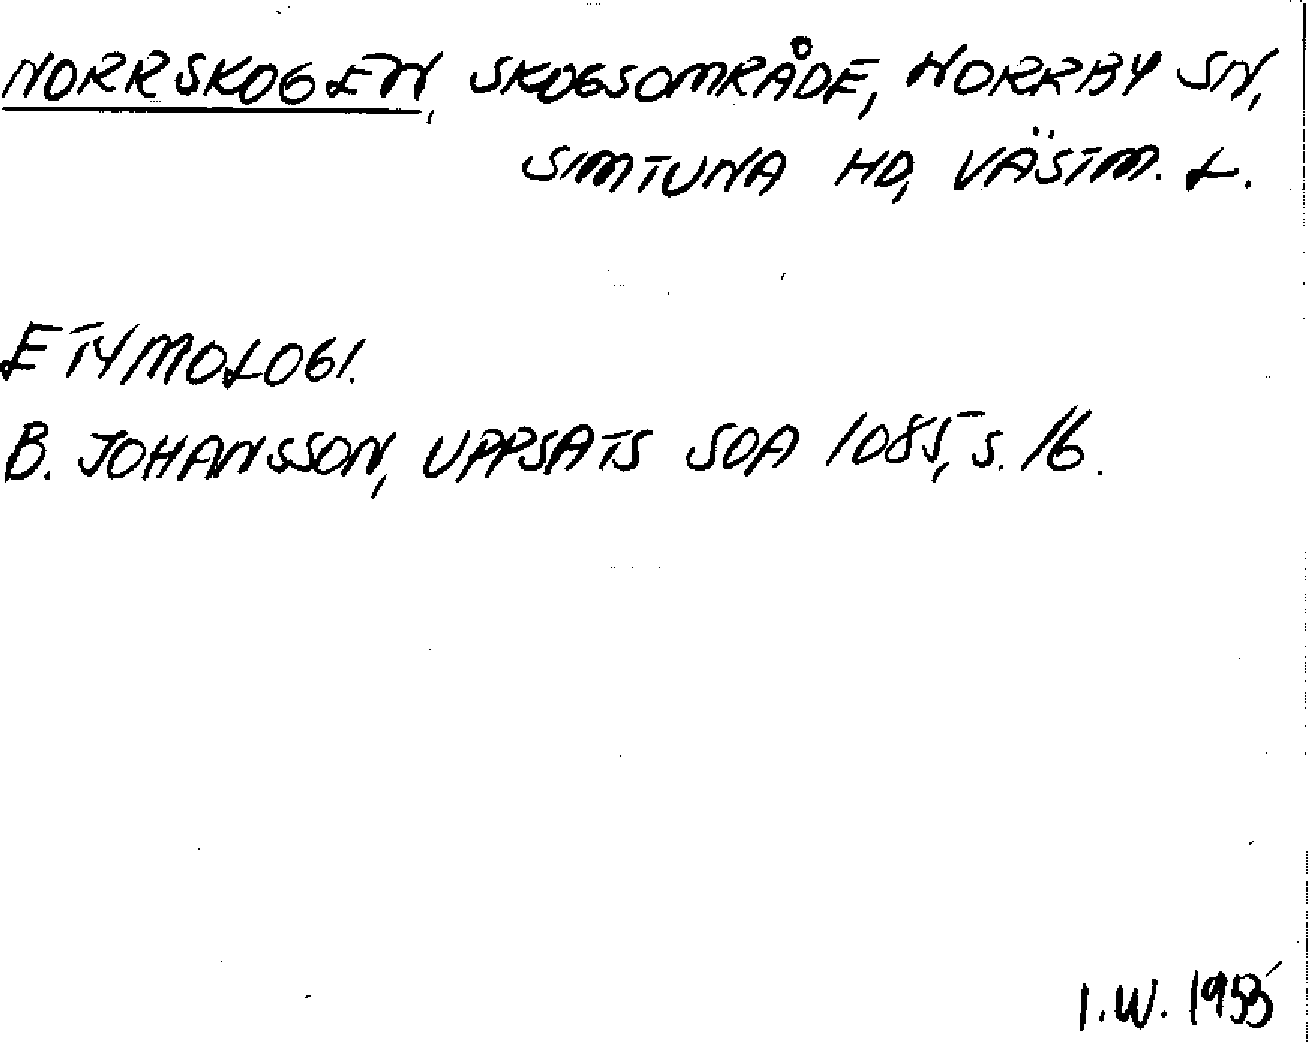 NORRSKOGEN, SKOGSOMRÅDE, NORRBY SN,
SIMTUNA HD, VÄSTM. L.
ETYMOLOGI.
B. JOHANSSON, UPPSATS SOA 1085, S. 16.
I.W.